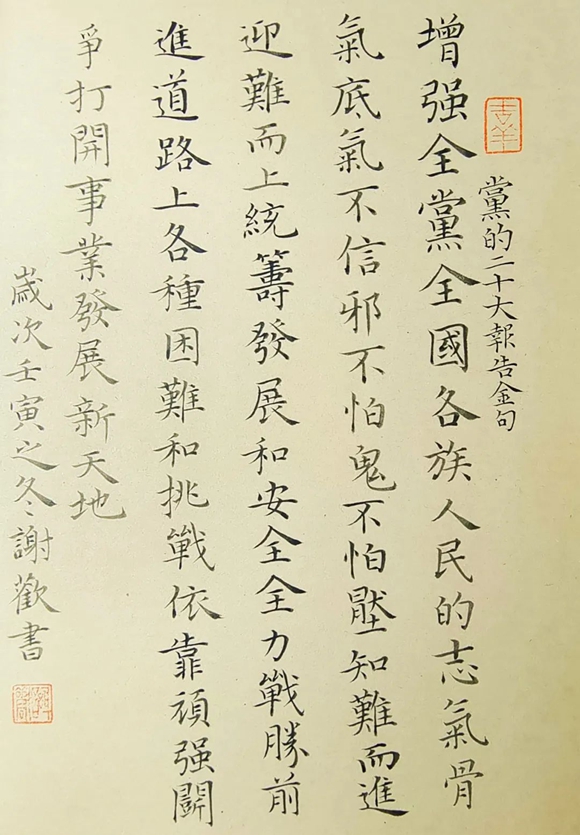 吉羊
黨的二十大報告金句
增强全黨全國各族人民的志氣骨
氣底氣不信邪不怕鬼不怕壓知難而進
迎難而上統籌發展和安全全力戰勝前
進道路上各種困難和挑戰依靠頑强鬭
爭打開事業發展新天地
歲次壬寅之冬謝歡書